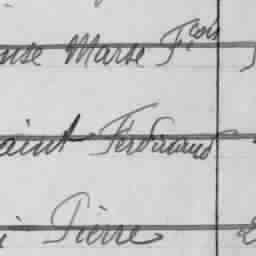 Marie Fçois
aint Ferdinand
Pierre